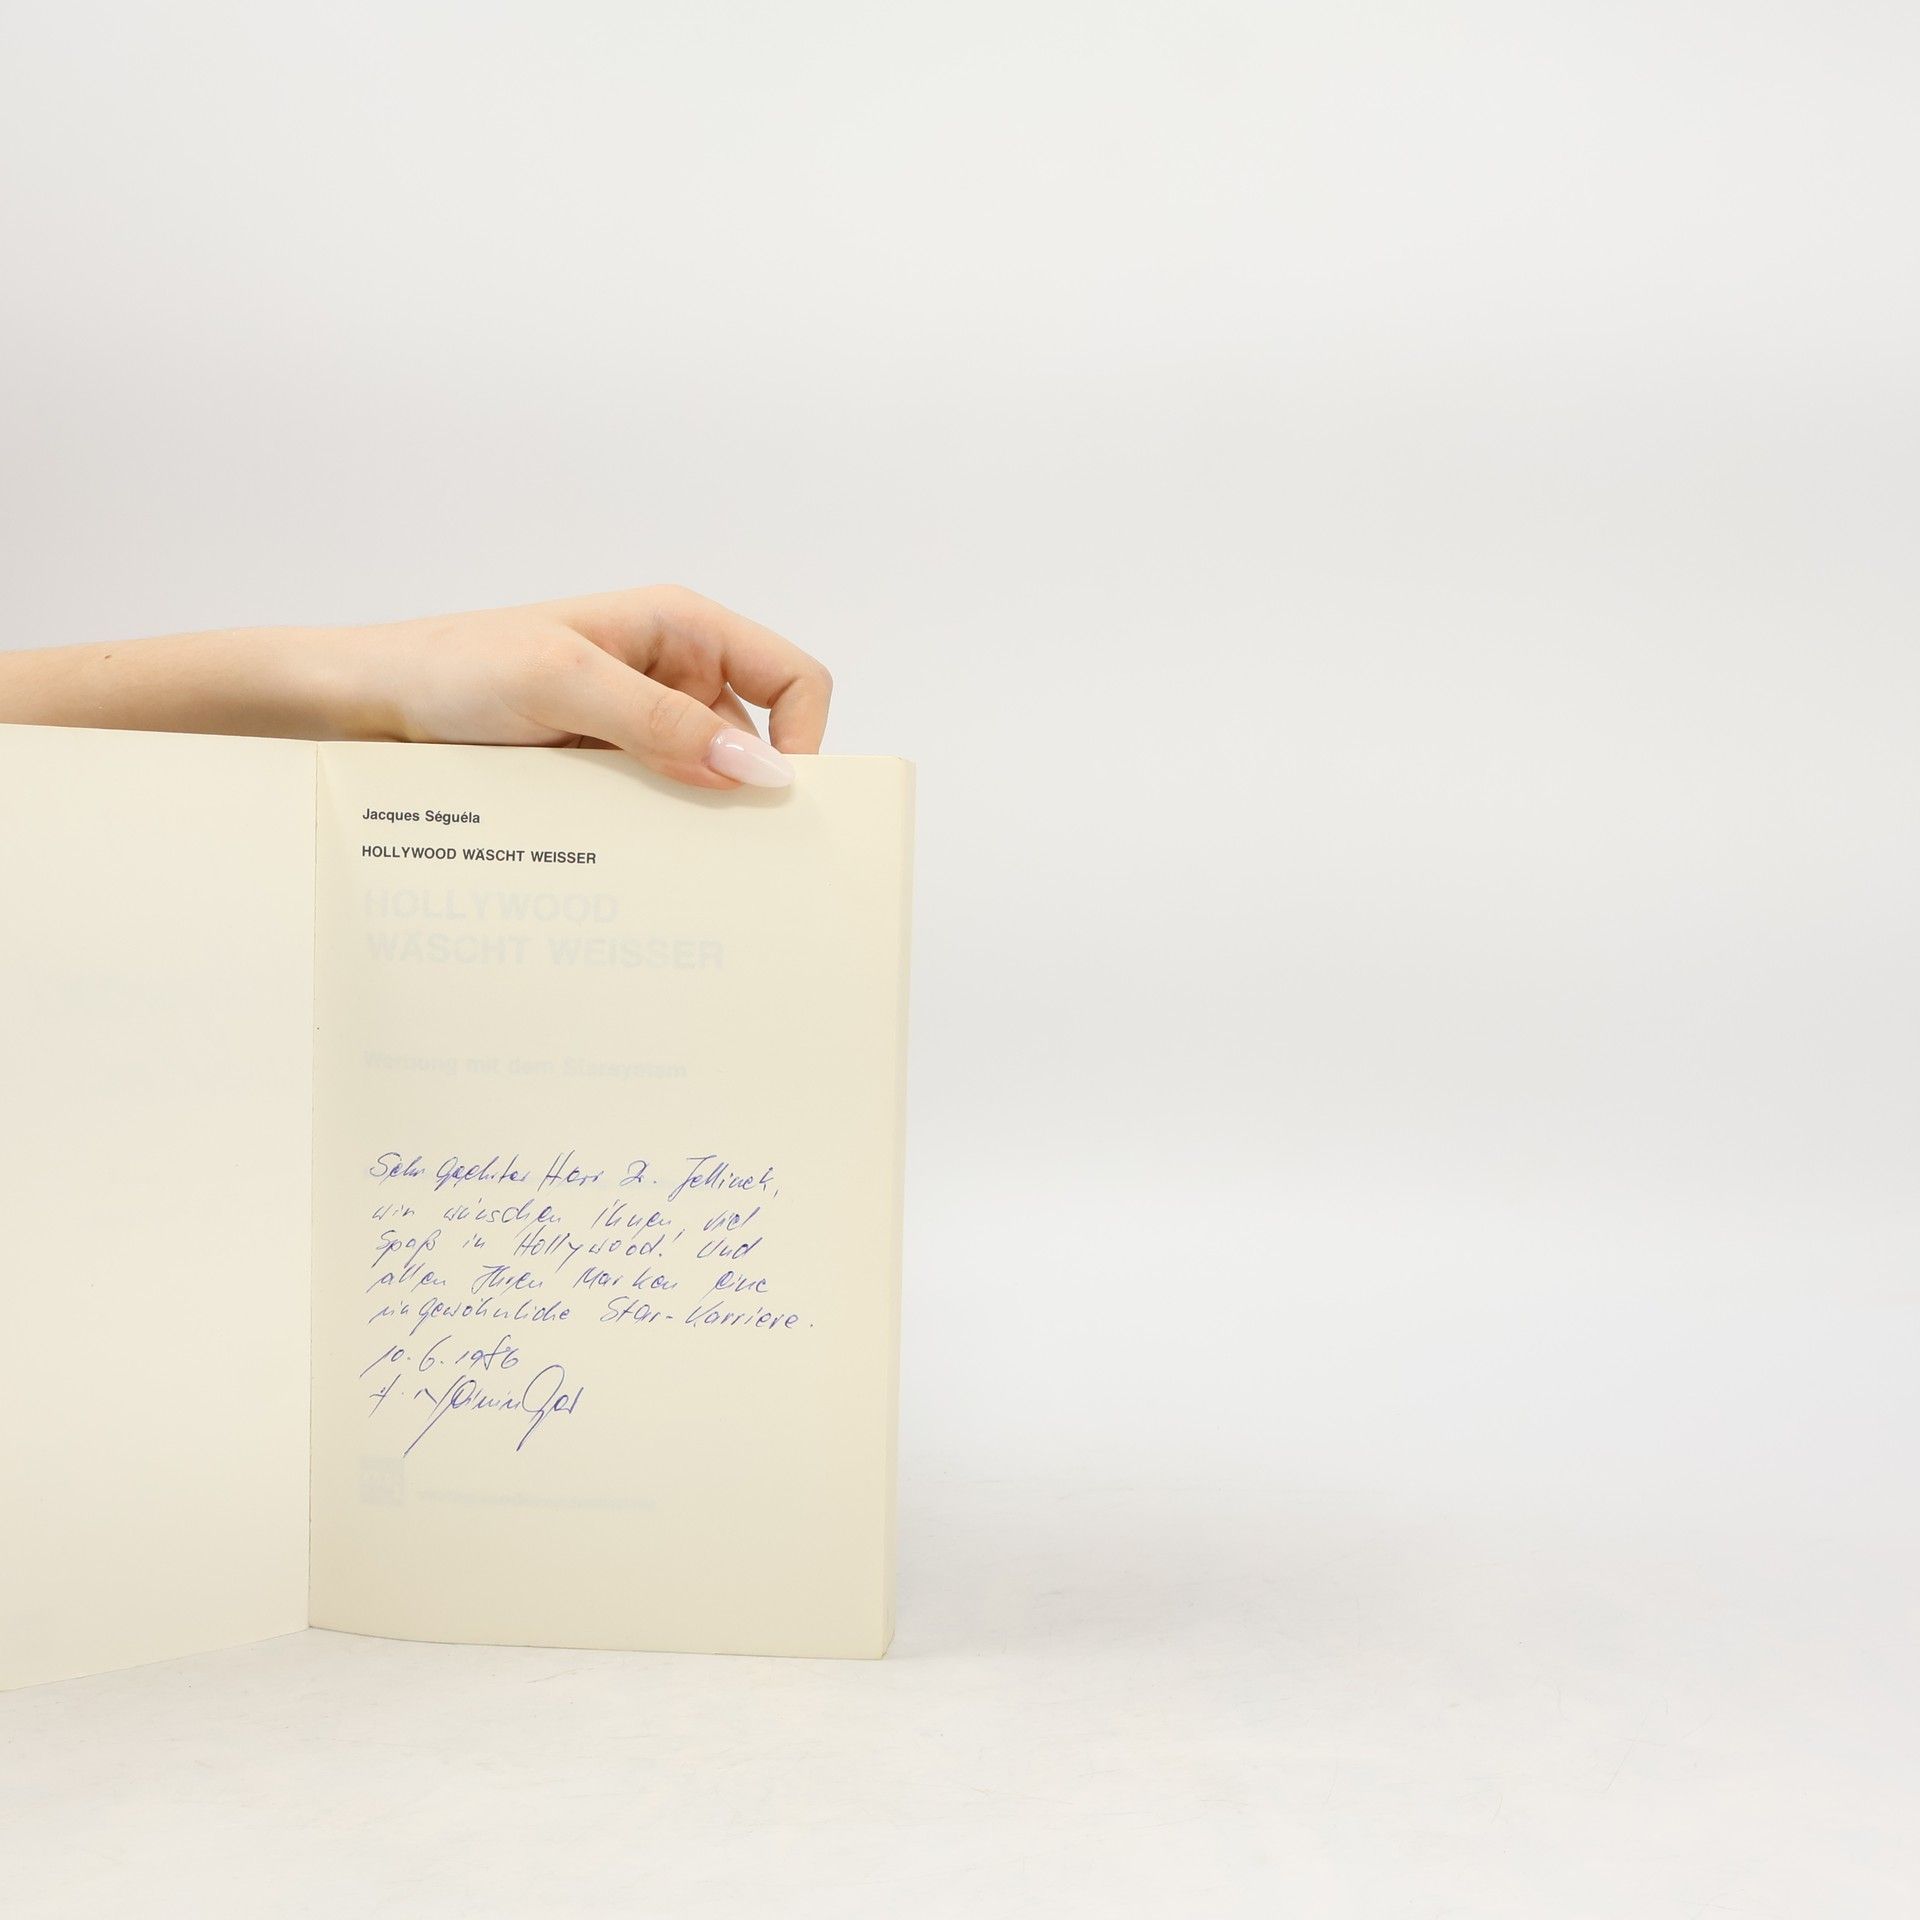 Jacques Séguéla
HOLLYWOOD WÄSCHT WEISSER
HOLLYWOOD
WÄSCHT WEISSER
Werbung mit dem Starsystem
Sehr geehrter Herr Dr. Jellinek,
wir wünschen Ihnen, viel
Spaß in Hollywood! Und
allen Ihren Marken eine
ungewöhnliche Star-Karriere.
10.6.1986